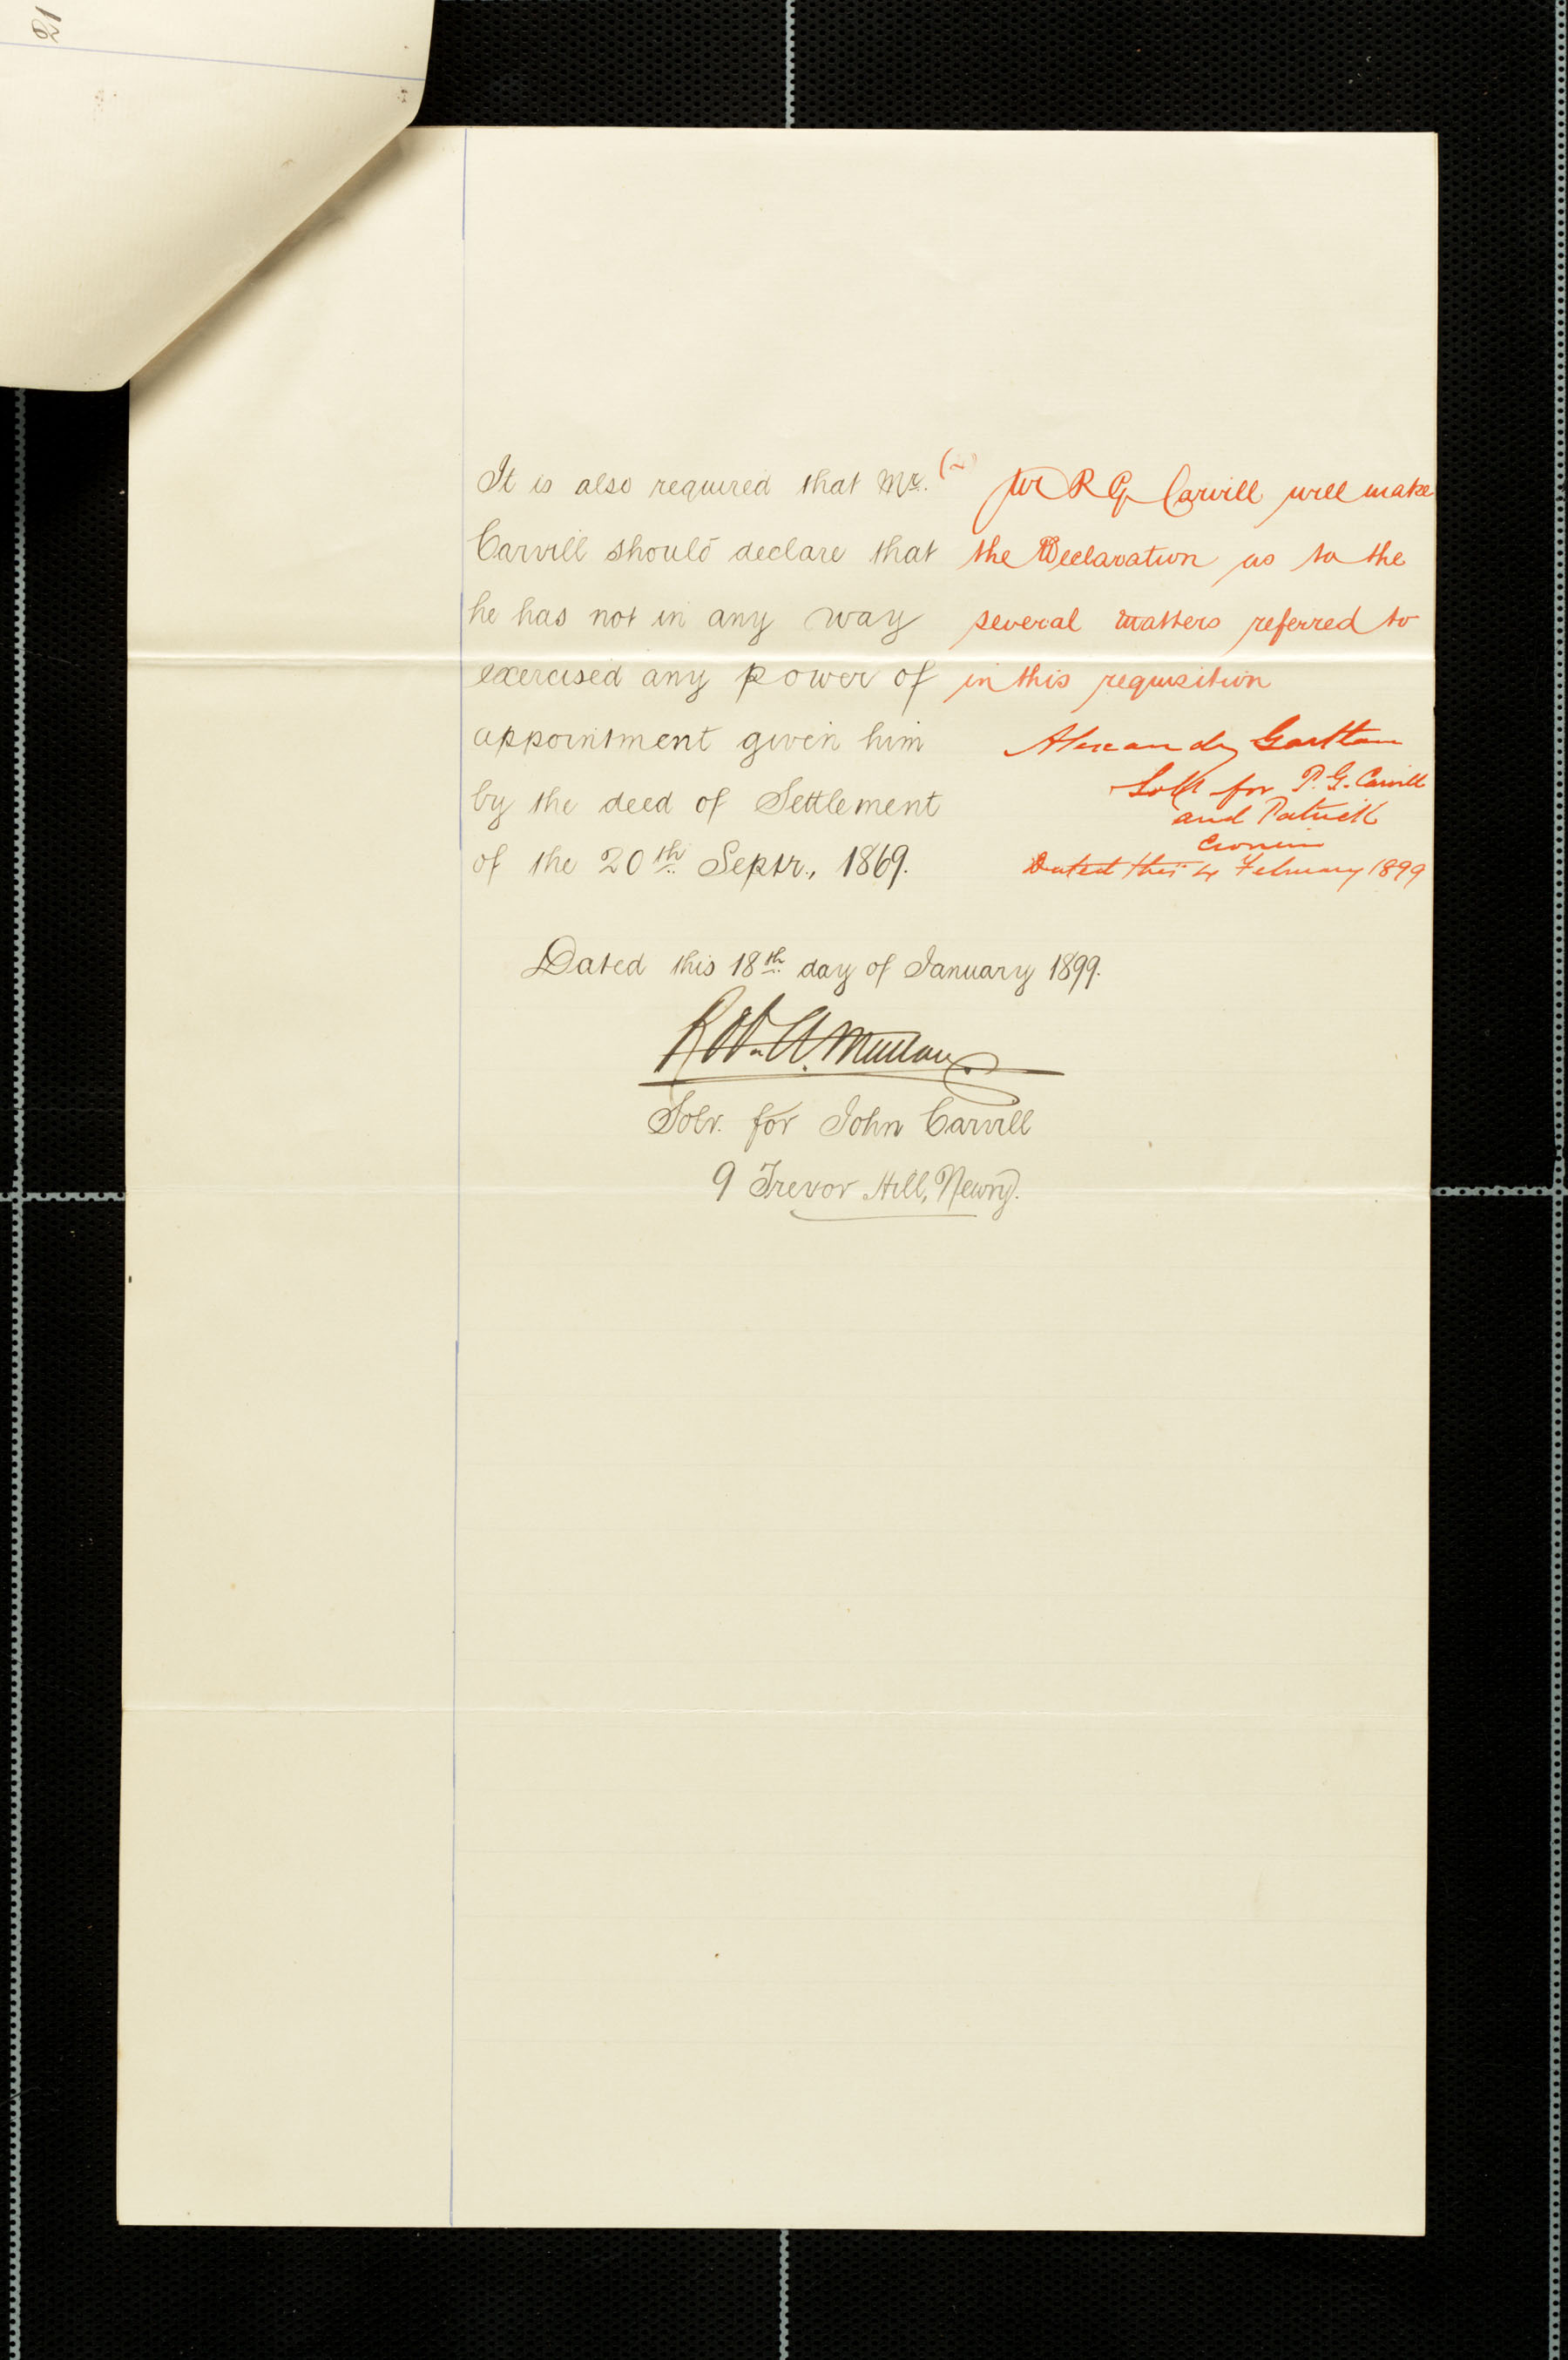 21
It is also required that Mr.
Carvill should declare that
he has not in any way
exercised any power of
appointment given him
by the deed of Settlement
of the 20th Septr., 1869.
Mr P G Carvill will make
the Declaration as to the
several matters referred to
in this requisition
Alexander Gartlan
Solr for P. G. Carvill
and Patrick
Cronin
Dated this 4 February 1899
Dated this 18th day of January 1899.
Solr. for John Carvill
9 Trevor Hill, Newry.